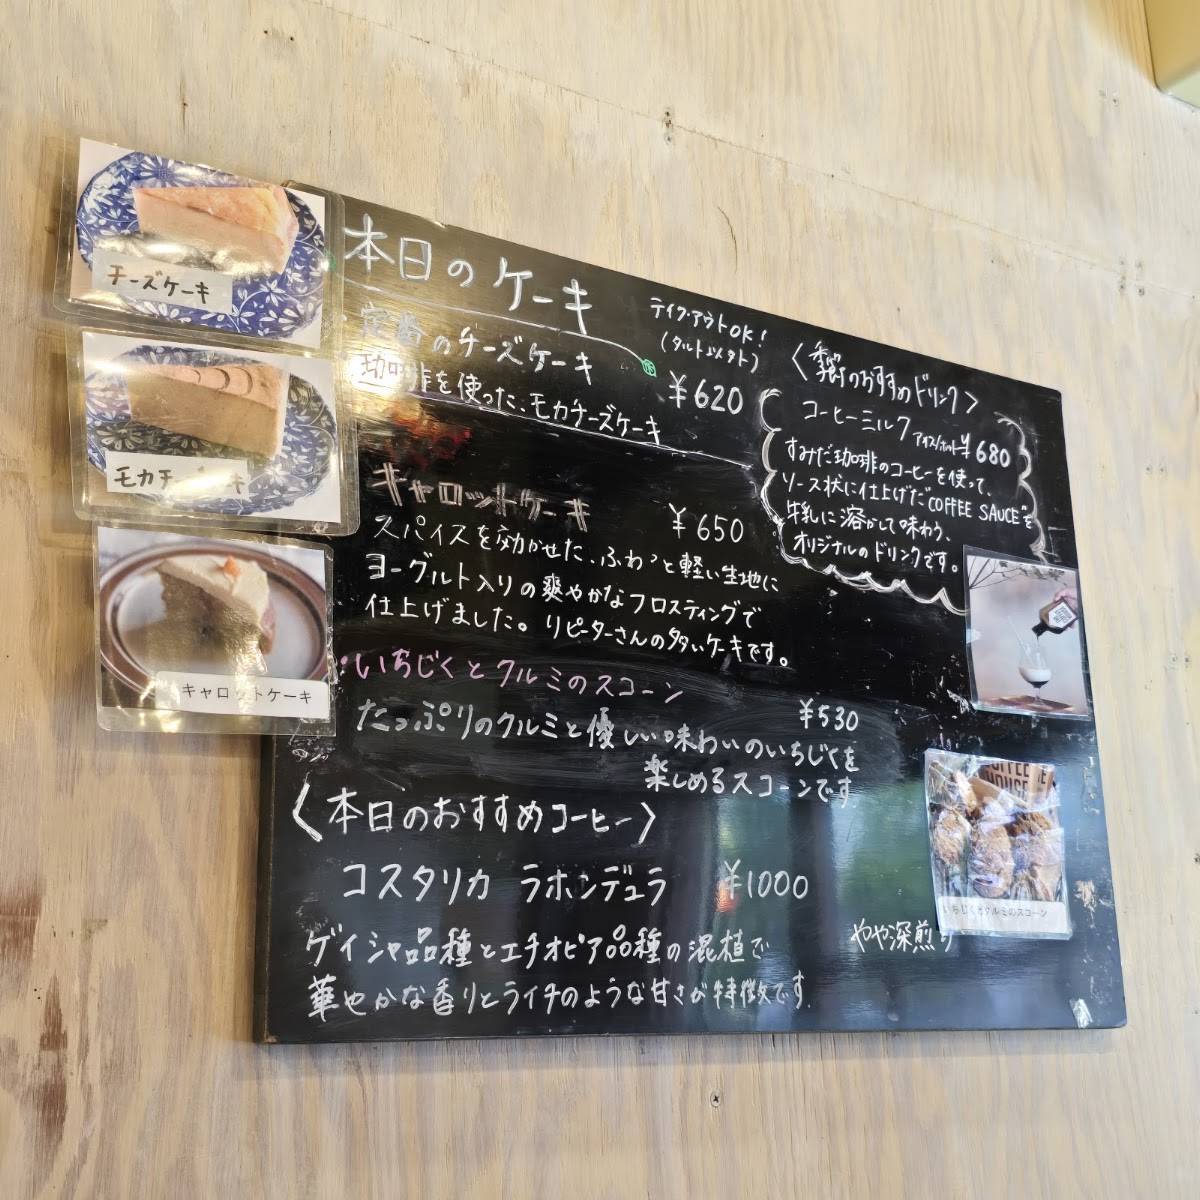 本日のケーキ
テイク・アウトOK!
(タルト以外)
・定番のチーズケーキ
珈琲を使った、モカチーズケーキ
¥620
キャロットケーキ
¥650
スパイスを効かせた、ふわっと軽い生地に
ヨーグルト入りの爽やかなフロスティングで
仕上げました。リピーターさんの多いケーキです。
・いちじくとクルミのスコーン
¥530
たっぷりのクルミと優しい味わいのいちじくを
楽しめるスコーンです
〈本日のおすすめコーヒー〉
コスタリカ ラホンデュラ ¥1000
やや深煎り
ゲイシャ品種とエチオピア品種の混植で
華やかな香りとライチのような甘さが特徴です.
のおすすめドリンク〉
コーヒーミルク アイス/ホット ¥680
すみだ珈琲のコーヒーを使って、
ソース状に仕上げた"COFFEE SAUCE"を
牛乳に溶かして味わう、
オリジナルのドリンクです。
チーズケーキ
モカチーズケーキ
キャロットケーキ
HOUSE
いちじくとクルミのスコーン